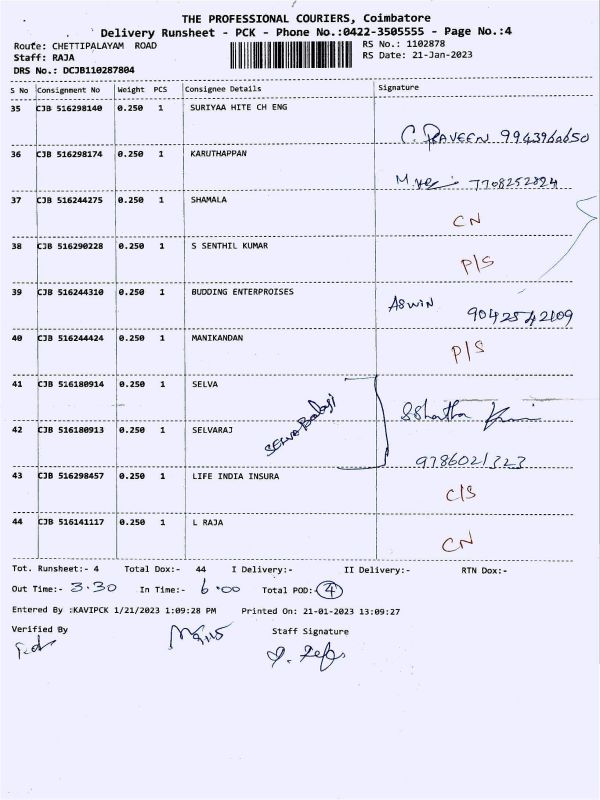 THE PROFESSIONAL COURIERS, Coimbatore
Delivery Runsheet - PCK - Phone No.:0422-3505555 - Page No.:4
Route: CHETTIPALAYAM ROAD
RS No.: 1102878
Staff: RAJA
RS Date: 21-Jan-2023
DRS No.: DCJB110287804
S No Consignment No Weight PCS Consignee Details Signature
35 CJB 516298140 0.250 1 SURIYAA HITE CH ENG
C. PRAVEEN
36 CJB 516298174 0.250 1 KARUTHAPPAN
7708252824
37 CJB 516244275 0.250 1 SHAMALA
CN
38 CJB 516290228 0.250 1 S SENTHIL KUMAR
P/S
39 CJB 516244310 0.250 1 BUDDING ENTERPROISES
ASWIN
9042542109
40 CJB 516244424 0.250 1 MANIKANDAN
P/S
41 CJB 516180914 0.250 1 SELVA
42 CJB 516180913 0.250 1 SELVARAJ
Selva Balaji
9786021323
43 CJB 516298457 0.250 1 LIFE INDIA INSURA
C/S
44 CJB 516141117 0.250 1 L RAJA
CN
Tot. Runsheet:- 4 Total Dox:- 44 I Delivery:- II Delivery:- RTN Dox:-
Out Time:- 3.30 In Time:- 6.00 Total POD: 4
Entered By :KAVIPCK 1/21/2023 1:09:28 PM Printed On: 21-01-2023 13:09:27
Verified By Staff Signature